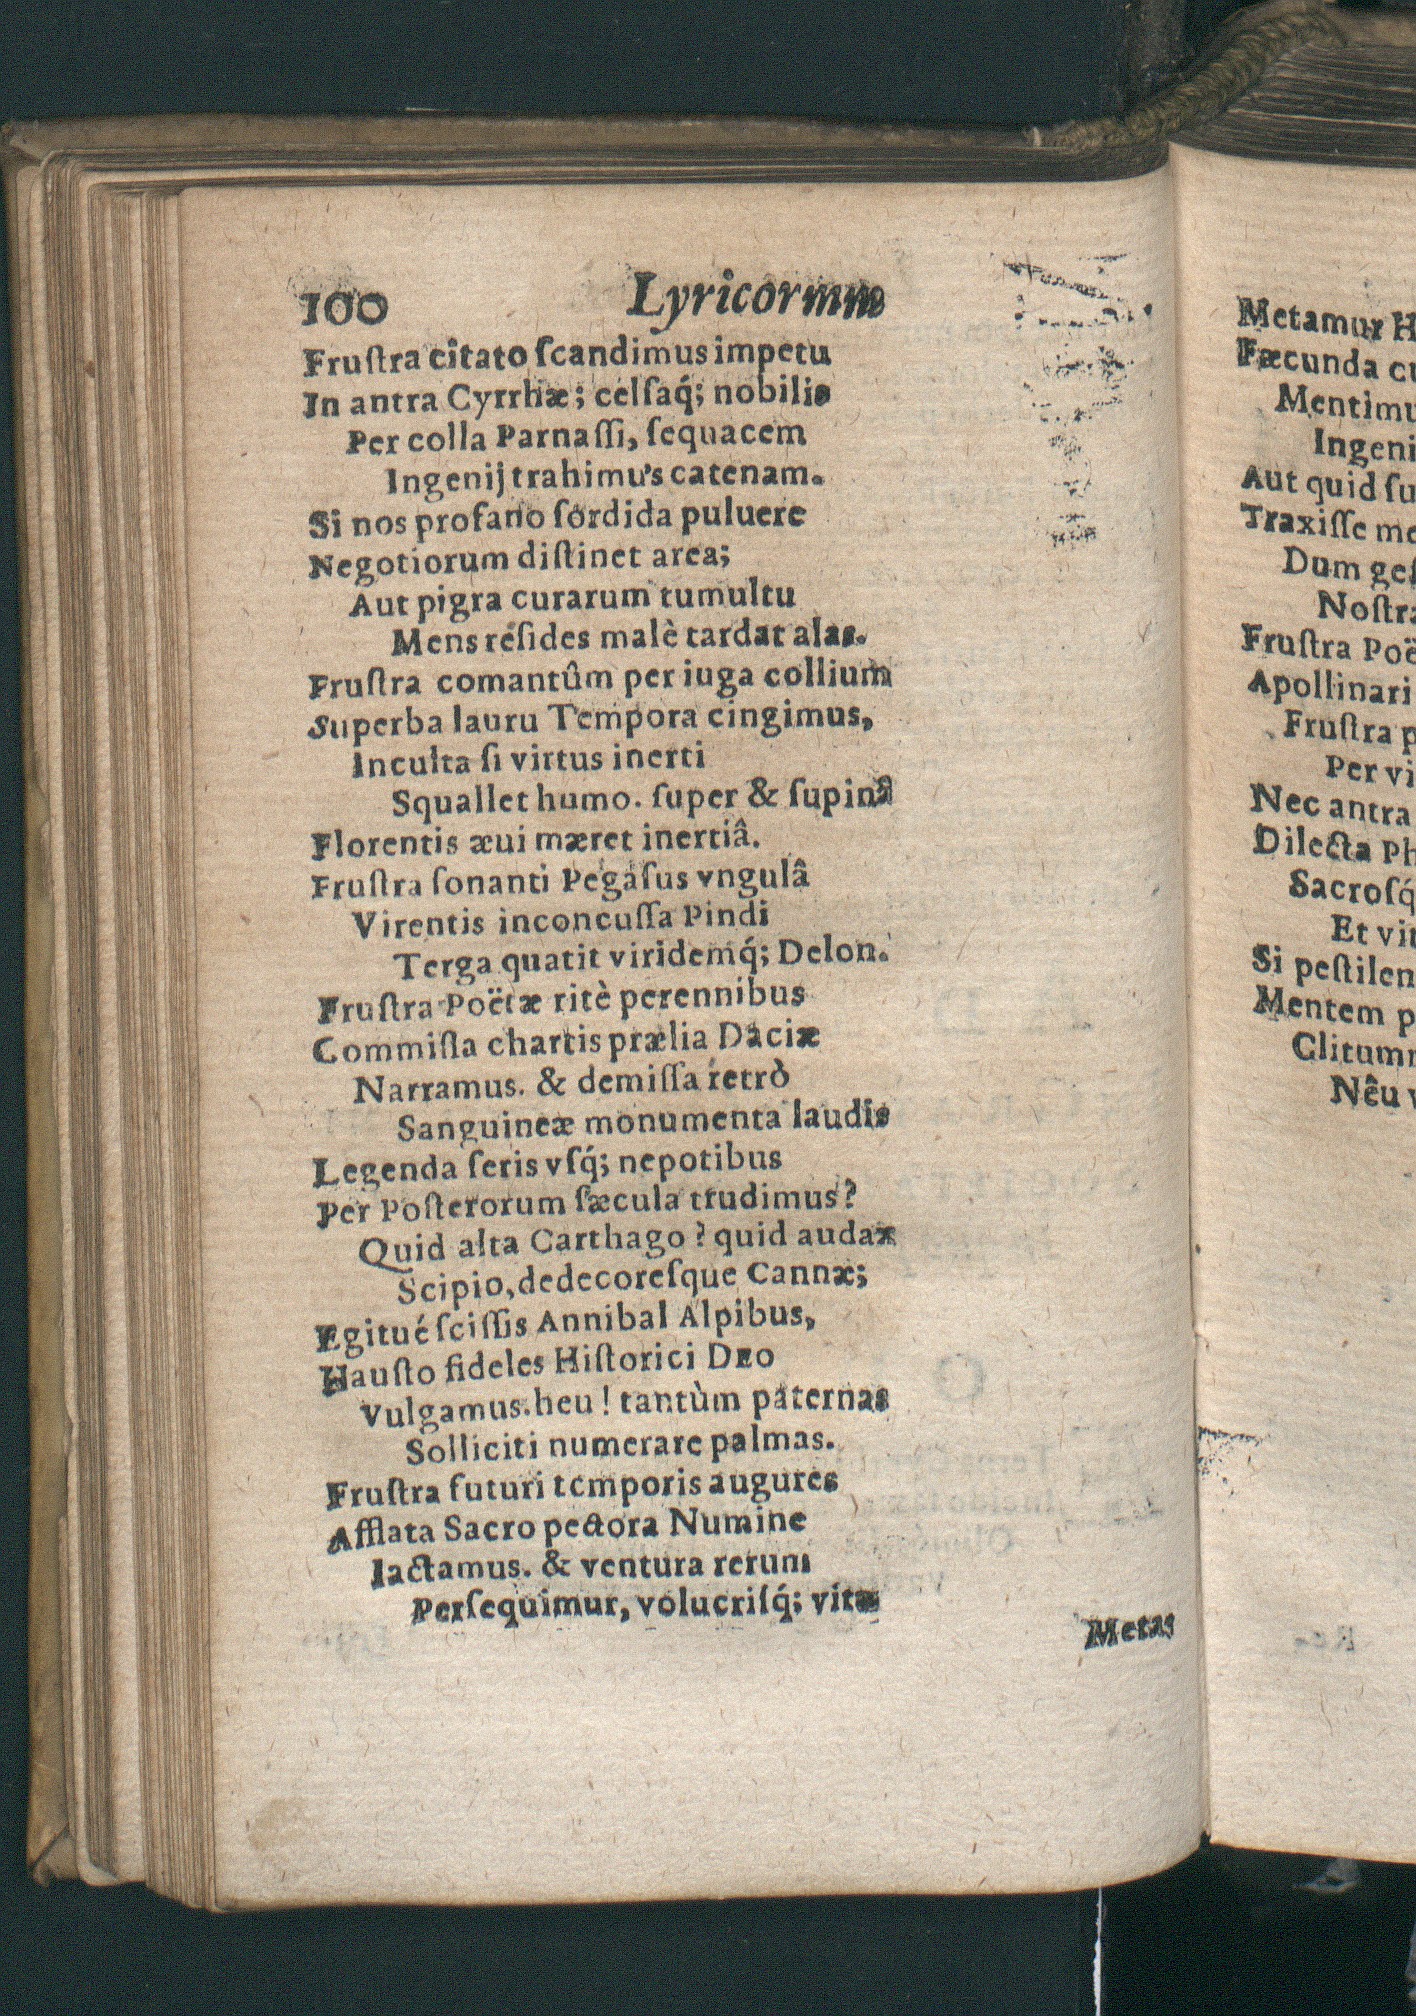 100 Lyricorum
Fruſtra citato ſcandimus impetu
In antra Cyrrhæ; celſaq́; nobilis
Per colla Parnaſſi, ſequacem
Ingenij trahimus catenam.
Si nos profano ſordida puluere
Negotiorum diſtinet area;
Aut pigra curarum tumultu
Mens reſides malè tardat alas.
Fruſtra comantûm per iuga collium
Superba lauru Tempora cingimus,
Inculta ſi virtus inerti
Squallet humo. ſuper & ſupinâ
Florentis æui mæret inertiâ.
Fruſtra ſonanti Pegaſus vngulâ
Virentis inconcuſſa Pindi
Terga quatit viridemq́; Delon.
Fruſtra Poëtæ ritè perennibus
Commiſſa chartis prælia Daciæ
Narramus. & demiſſa retrò
Sanguineæ monumenta laudis
Legenda ſeris vſq́; nepotibus
Per Poſterorum ſæcula trudimus?
Quid alta Carthago? quid audax
Scipio, dedecoreſque Cannæ;
Egitué ſciſſis Annibal Alpibus,
Hauſto fideles Hiſtorici Deo
Vulgamus. heu! tantùm paternas
Solliciti numerare palmas.
Fruſtra futuri temporis augures
Afflata Sacro pectora Numine
Iactamus. & ventura rerum
Perſequimur, volucriſq́; vitæ
Metas
Metamur H
Fæcunda cu
Mentimu
Ingeni
Aut quid ſu
Traxiſſe me
Dum geſ
Noſtra
Fruſtra Poë
Apollinari
Fruſtra p
Per vi
Nec antra
Dilecta Ph
Sacroſq́
Et vit
Si peſtilen
Mentem p
Clitumn
Nêu v